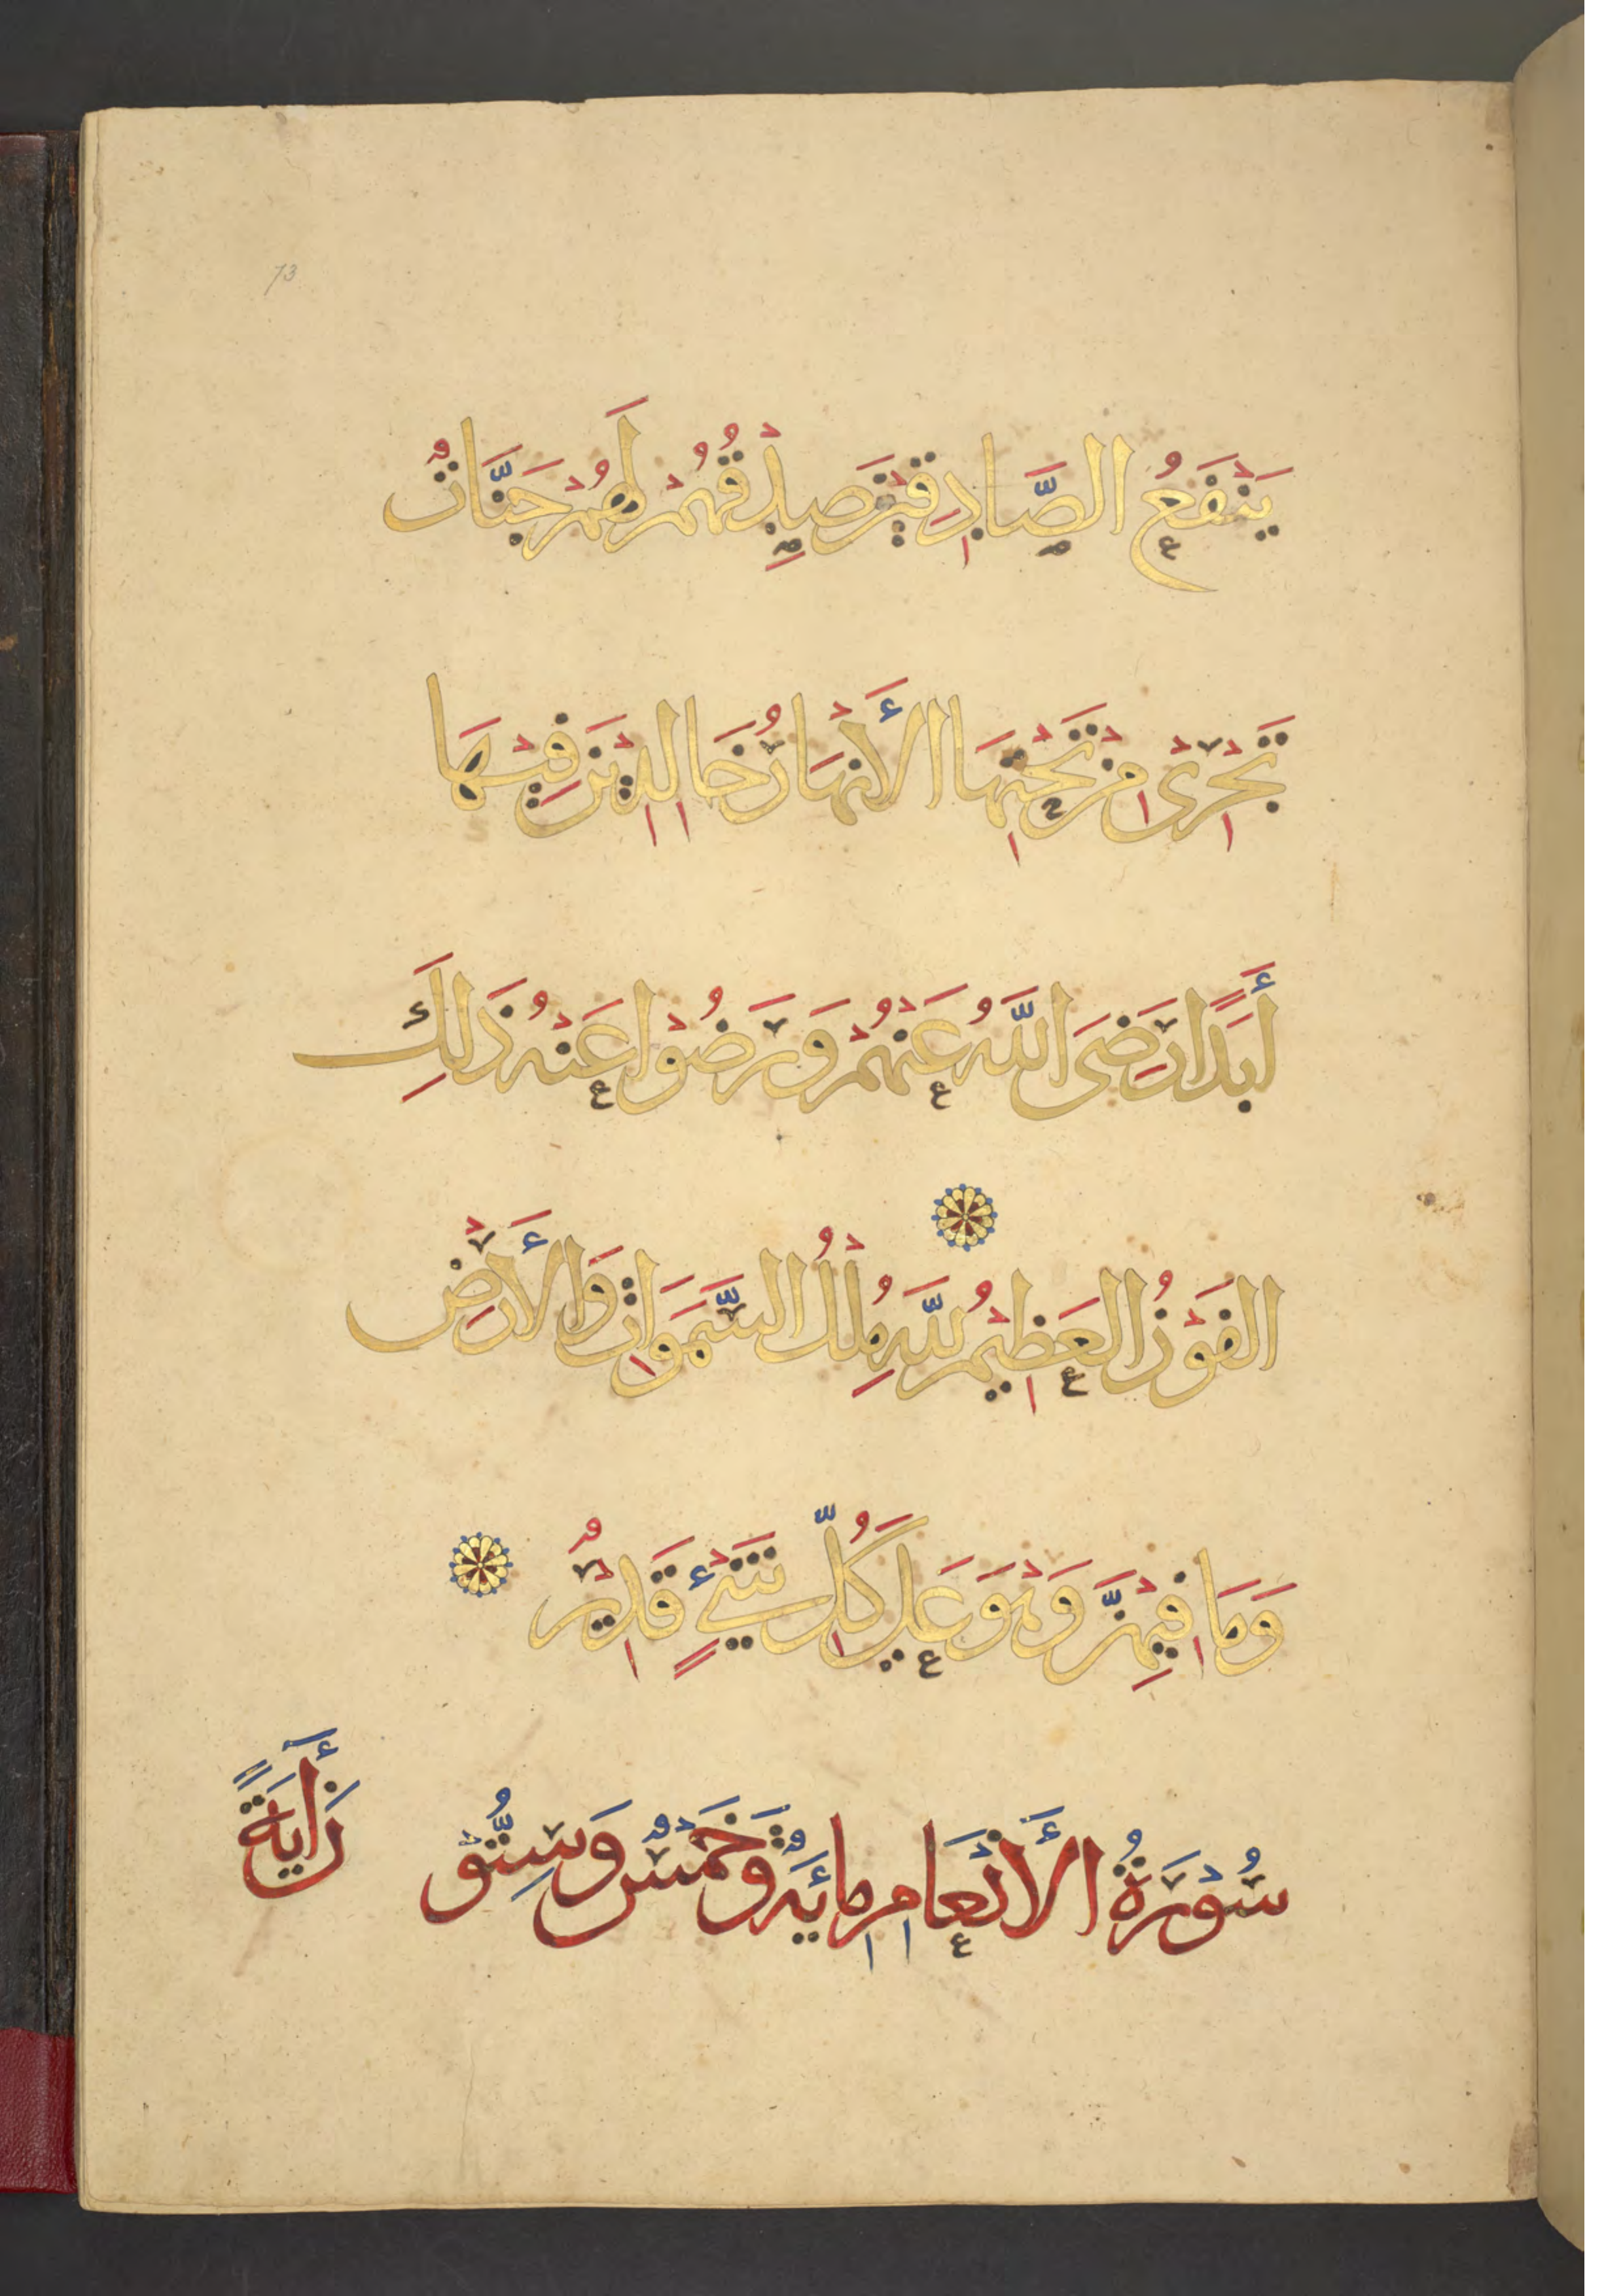 73
يَنْفَعُ الصَّادِقِيْنَ صِدْقُهُمْ لَهُمْ جَنَّاتٌ
تَجْرِيْ مِنْ تَحْتِهَا الْأَنْهَارُ خَالِدِيْنَ فِيْهَا
أَبَدًا رَضِىَ اللَّهُ عَنْهُمْ وَرَضُوْا عَنْهُ ذَلِكَ
الفَوْزُ العَظِيْمُ لِلَّهِ مُلْكُ السَّمَوَاتِ وَالْأَرْضِ
وَمَا فِيْهِنَّ وَهْوَ عَلَي كُلِّ شَيْءٍ قَدِيْرٌ
سُوْرَةُ الْأَنْعَامِ مِائَةٌ وَخَمْسٌ وَسِتُّوْ
نَ أَيَةً